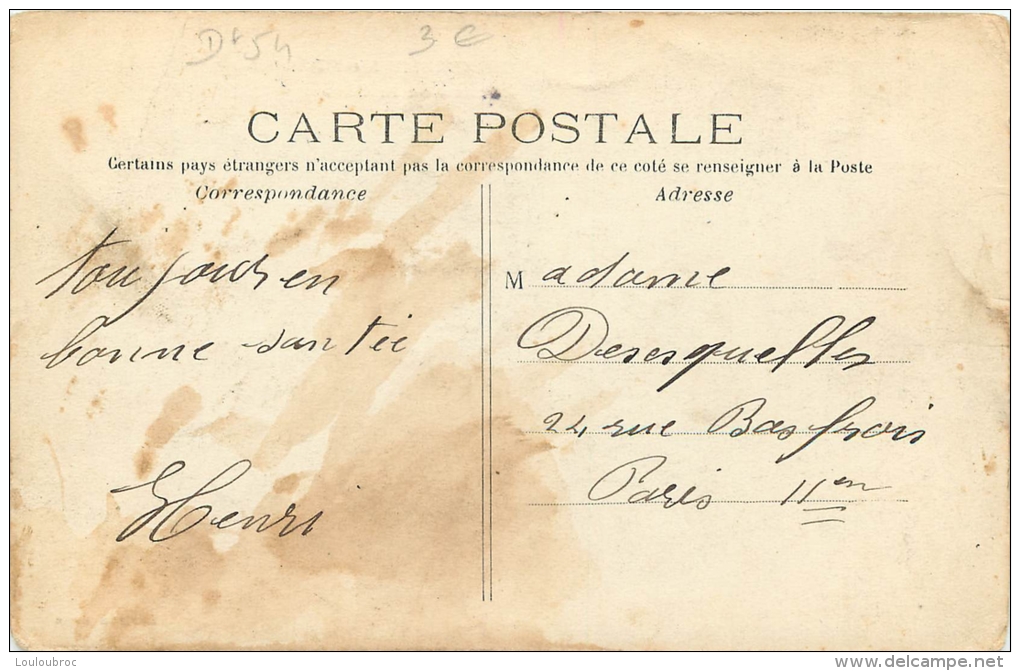 Dt 54 3 €
CARTE POSTALE
Certains pays étrangers n'acceptant pas la correspondance de ce coté se renseigner à la Poste
Correspondance
toujours en
bonne santée
Henri
Adresse
Madame
Desesquelles
24 rue Basfrois
Paris 11em
Louloubroc
www.delcampe.net